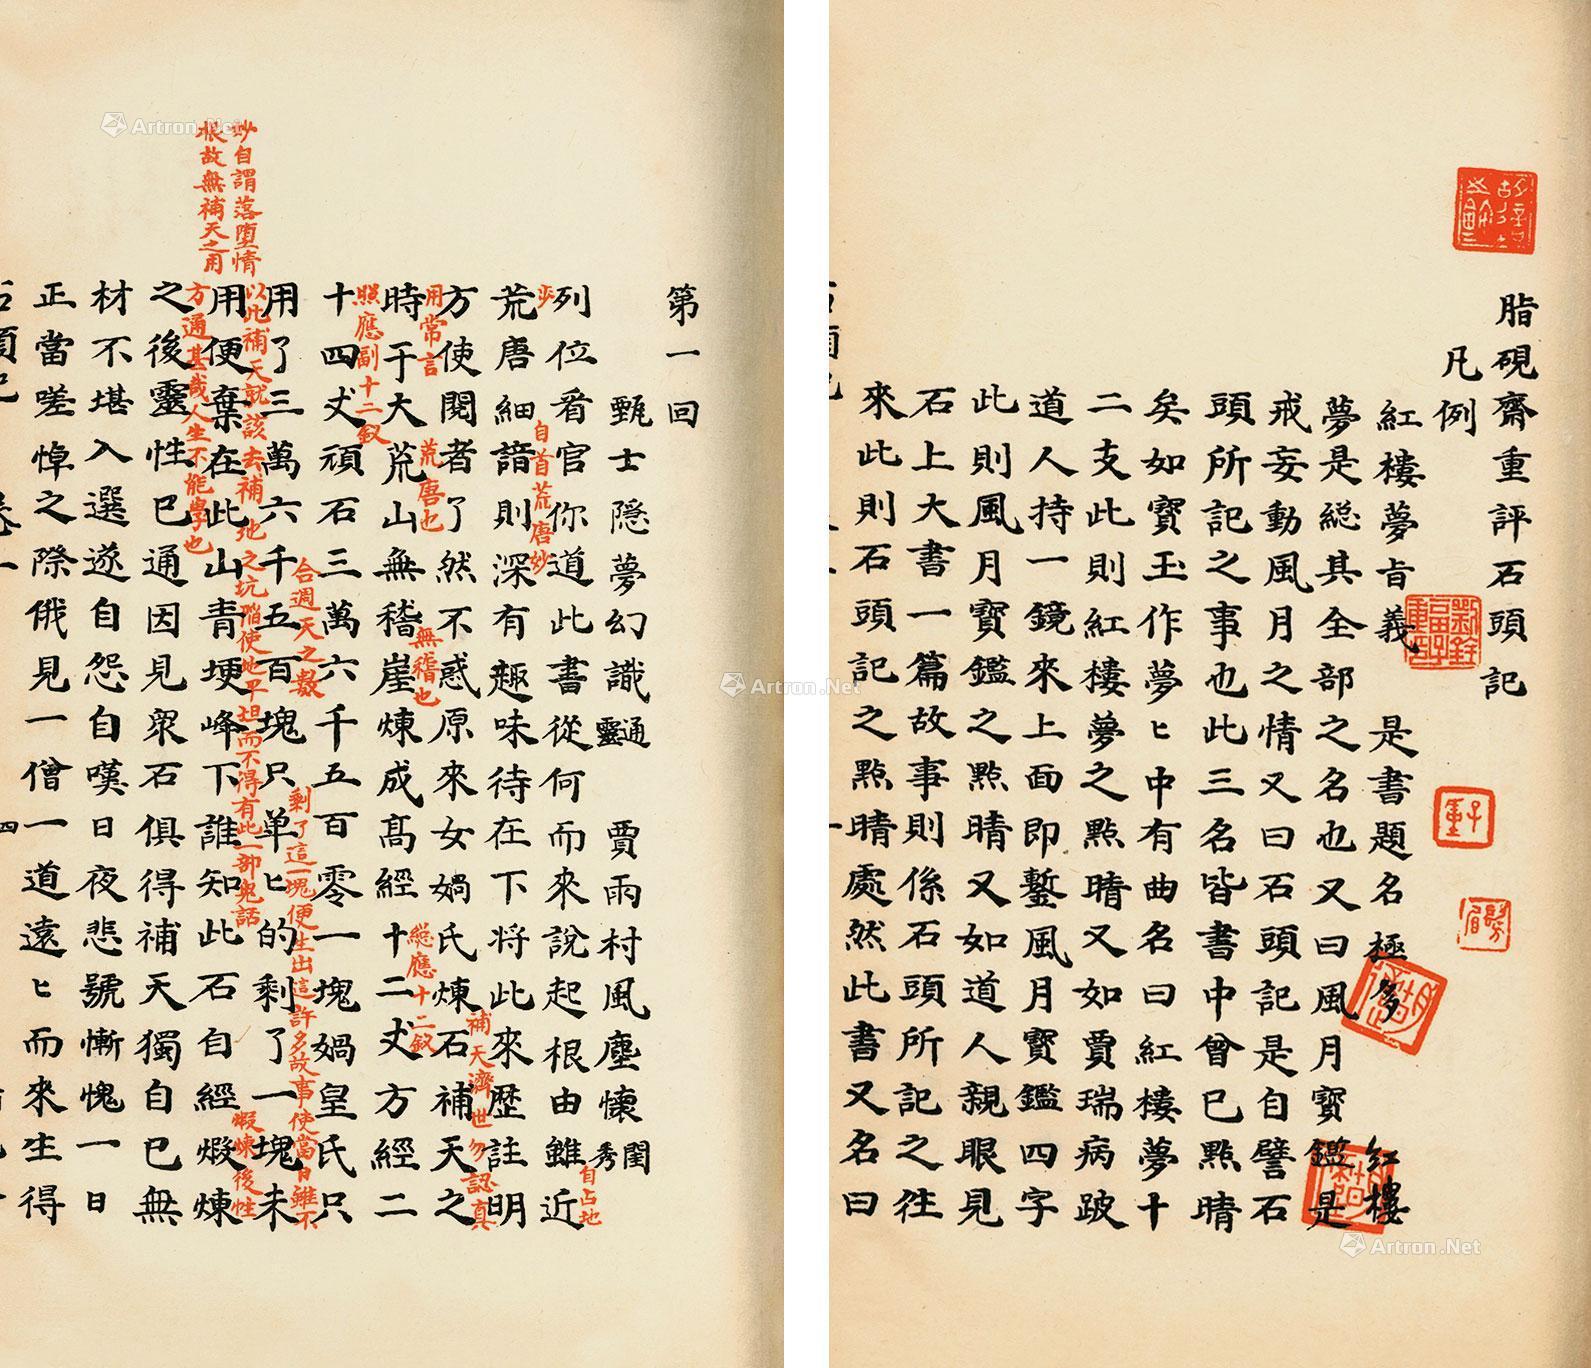 脂硯齋重評石頭記
凡例
紅樓夢旨義　是書題名極多　紅樓
夢是総其全部之名也又曰風月寶鑑是
戒妄動風月之情又曰石頭記是自譬石
頭所記之事也此三名皆書中曾已點晴
矣如寶玉作夢夢匕中有曲名曰紅樓夢十
二支此則紅樓夢之點晴又如賈瑞病跛
道人持一鏡來上面即鏨風月寶鑑四字
此則風月寶鑑之點晴又如道人親眼見
石上大書一篇故事則係石頭所記之往
來此則石頭記之點晴處然此書又名曰
第一回
甄士隱夢幻識通靈　賈雨村風塵懷閨秀
列位看官你道此書從何而來說起根由雖近
自占地
步
自首荒唐妙
荒唐細諳則深有趣味待在下將此來歷註明
方使閱者了然不惑原來女媧氏煉石補天之
補天濟世勿認真
用常言
時于大荒山無稽崖煉成高經十二丈方經二
荒唐也
無稽也
総應十二釵
十四丈頑石三萬六千五百零一塊媧皇氏只
照應副十二釵
用了三萬六千五百塊只单匕的剩了一塊未
合週天之數
剩了這一塊便生出這許多故事使當日雖不
以此補天就該去補地之坑陷使地平坦而不得有此一部鬼話
用便棄在此山青埂峰下誰知此石自經煅煉
妙自謂落堕情
根故無補天之用
煅煉後性
方通甚哉人生不能學也
之後靈性已通因見眾石俱得補天獨自已無
材不堪入選遂自怨自嘆日夜悲號慚愧一日
正當嗟悼之際俄見一僧一道遠匕而來生得
四
Artron.Net
Artron.Net
Artron.Net